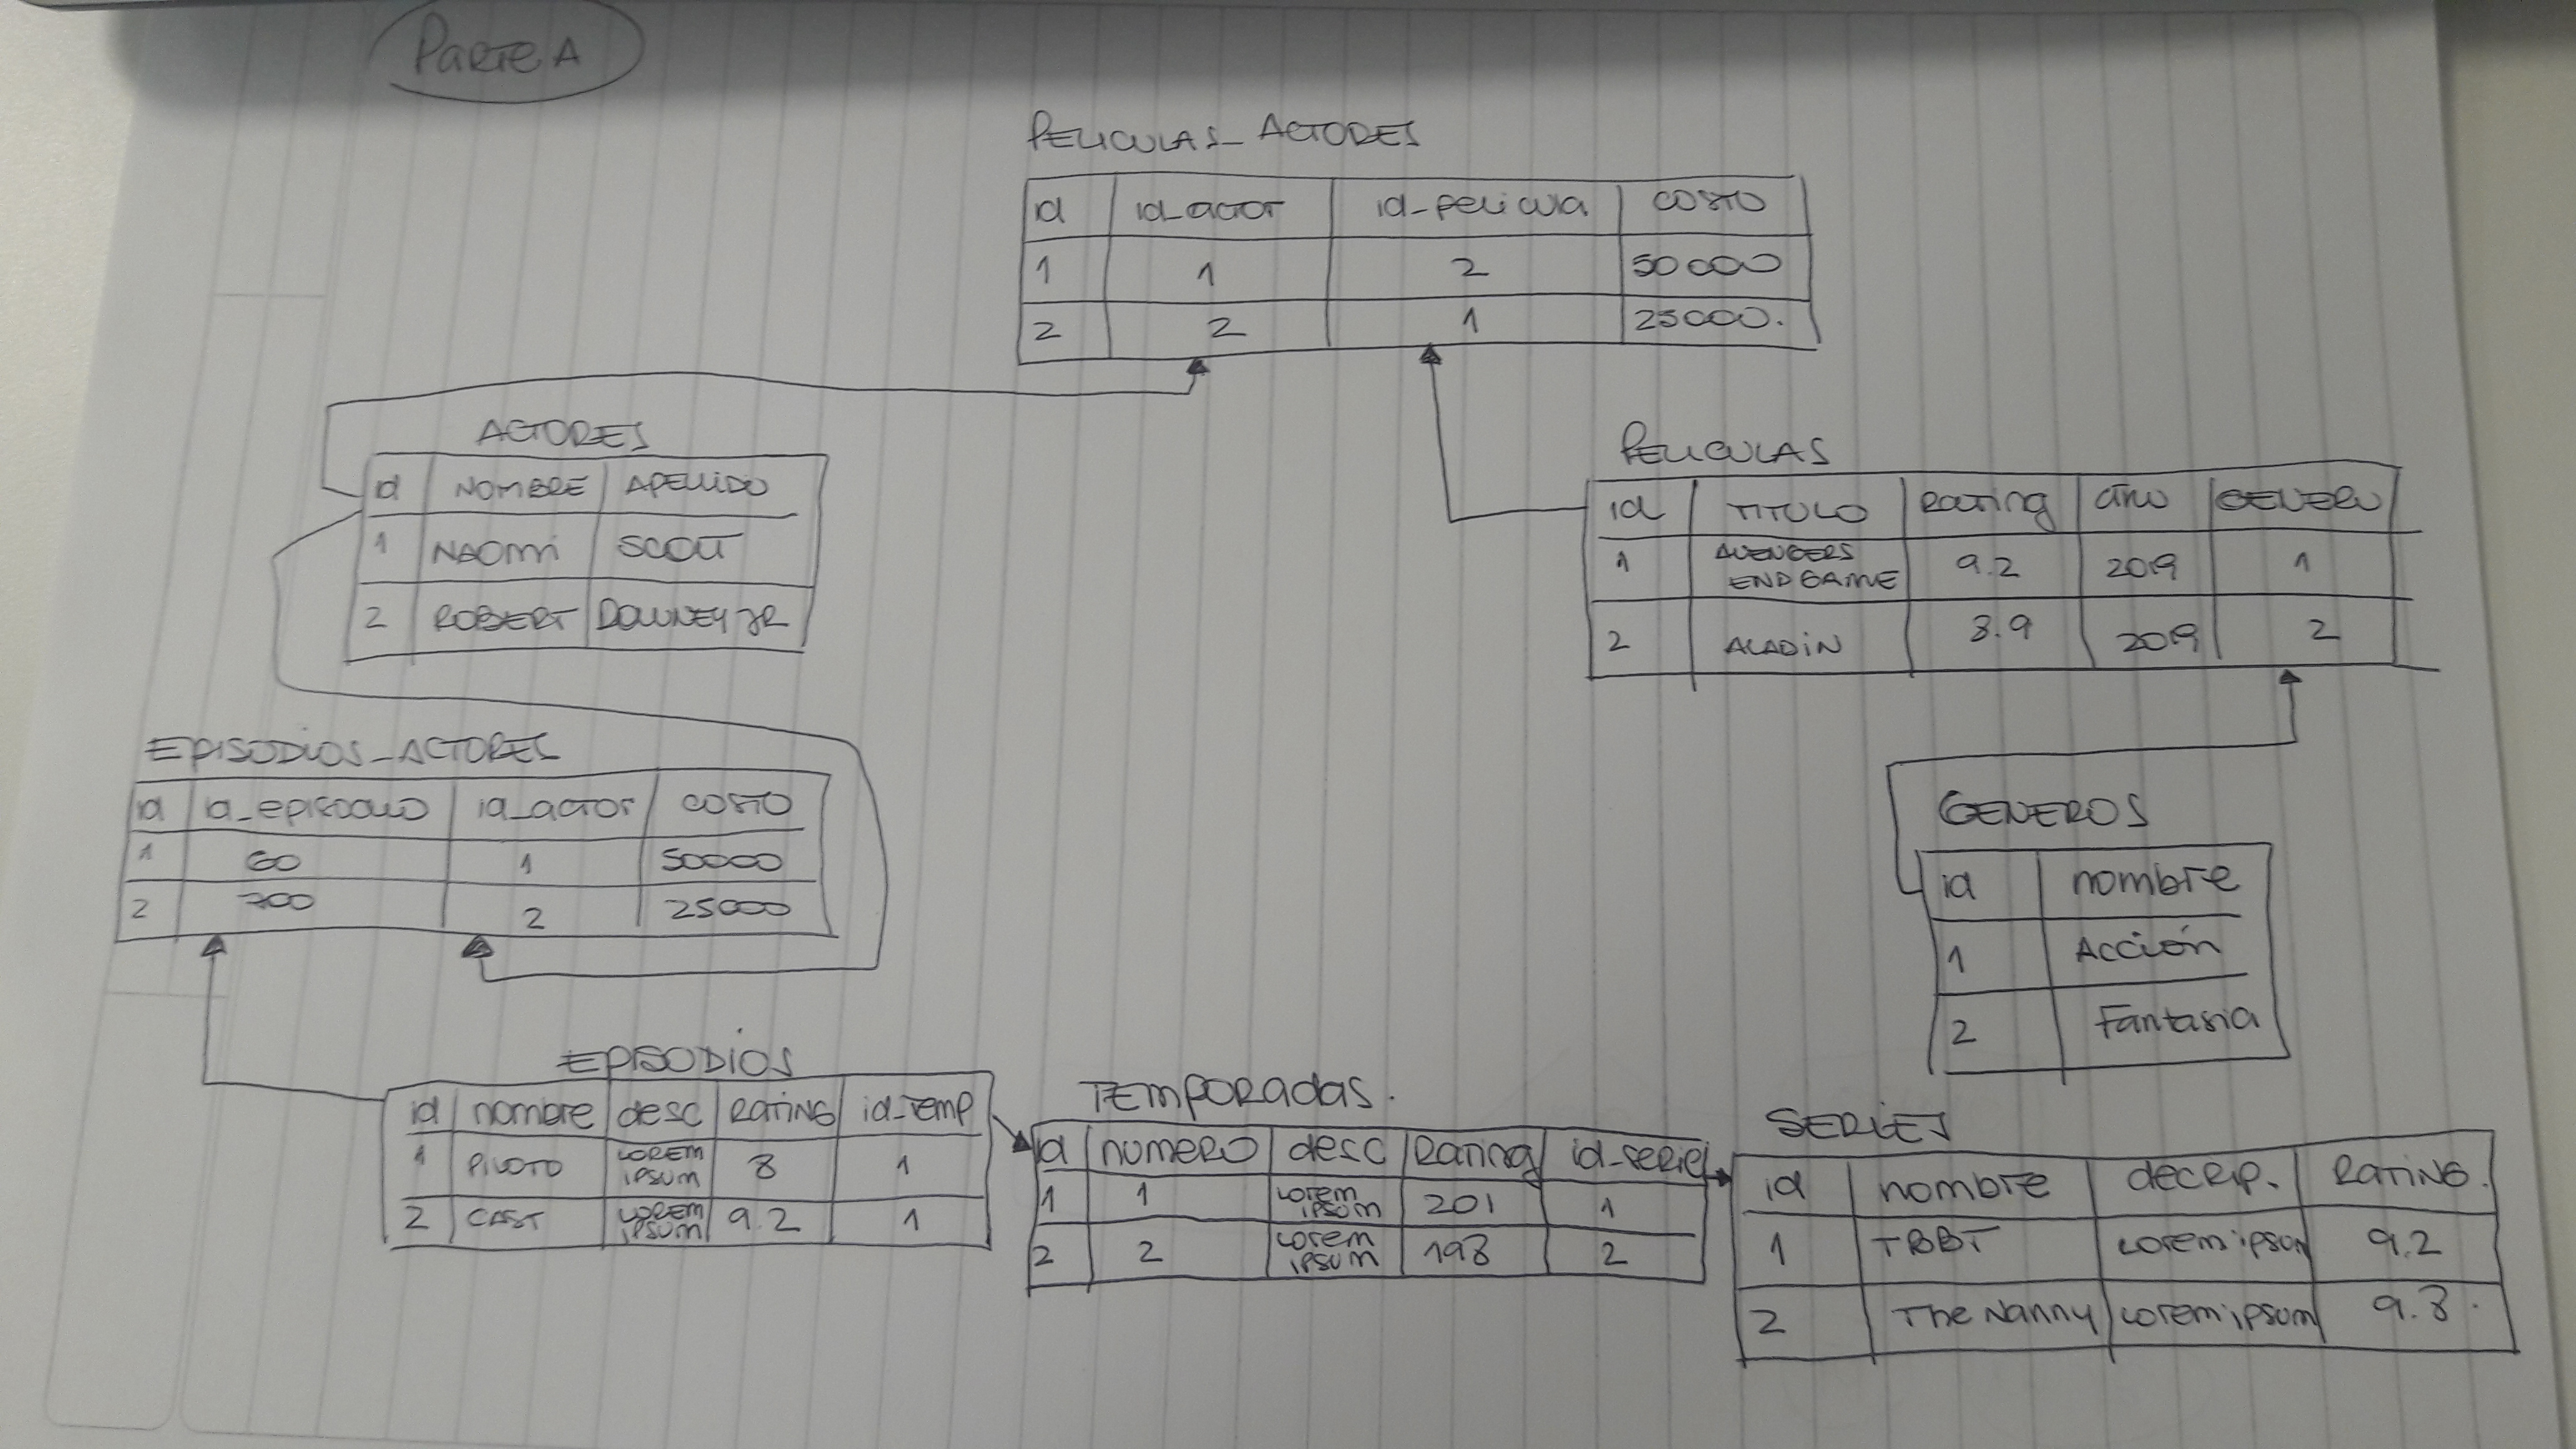 Parte A
PELICULAS_ACTORES
id id_actor id_pelicula COSTO
1 1 2 50000
2 2 1 25000.
ACTORES
id NOMBRE APELLIDO
1 NAOMI SCOTT
2 ROBERT DOWNEY JR
PELICULAS
id TITULO Rating año GENERO
1 AVENGERS ENDGAME 9.2 2019 1
2 ALADIN 8.9 2019 2
EPISODIOS_ACTORES
id id_episodio id_actor COSTO
1 60 1 50000
2 700 2 25000
GENEROS
id nombre
1 Acción
2 Fantasia
EPISODIOS
id nombre desc RATING id_Temp
1 PILOTO LOREM IPSUM 8 1
2 CAST LOREM IPSUM 9.2 1
TEMPORadas.
id NUMERO desc Rating id_serie
1 1 Lorem ipsum 201 1
2 2 Lorem ipsum 198 2
SERIES
id nombre decrip. RATING.
1 TBBT Lorem ipsum 9.2
2 The Nanny Lorem ipsum 9.8.